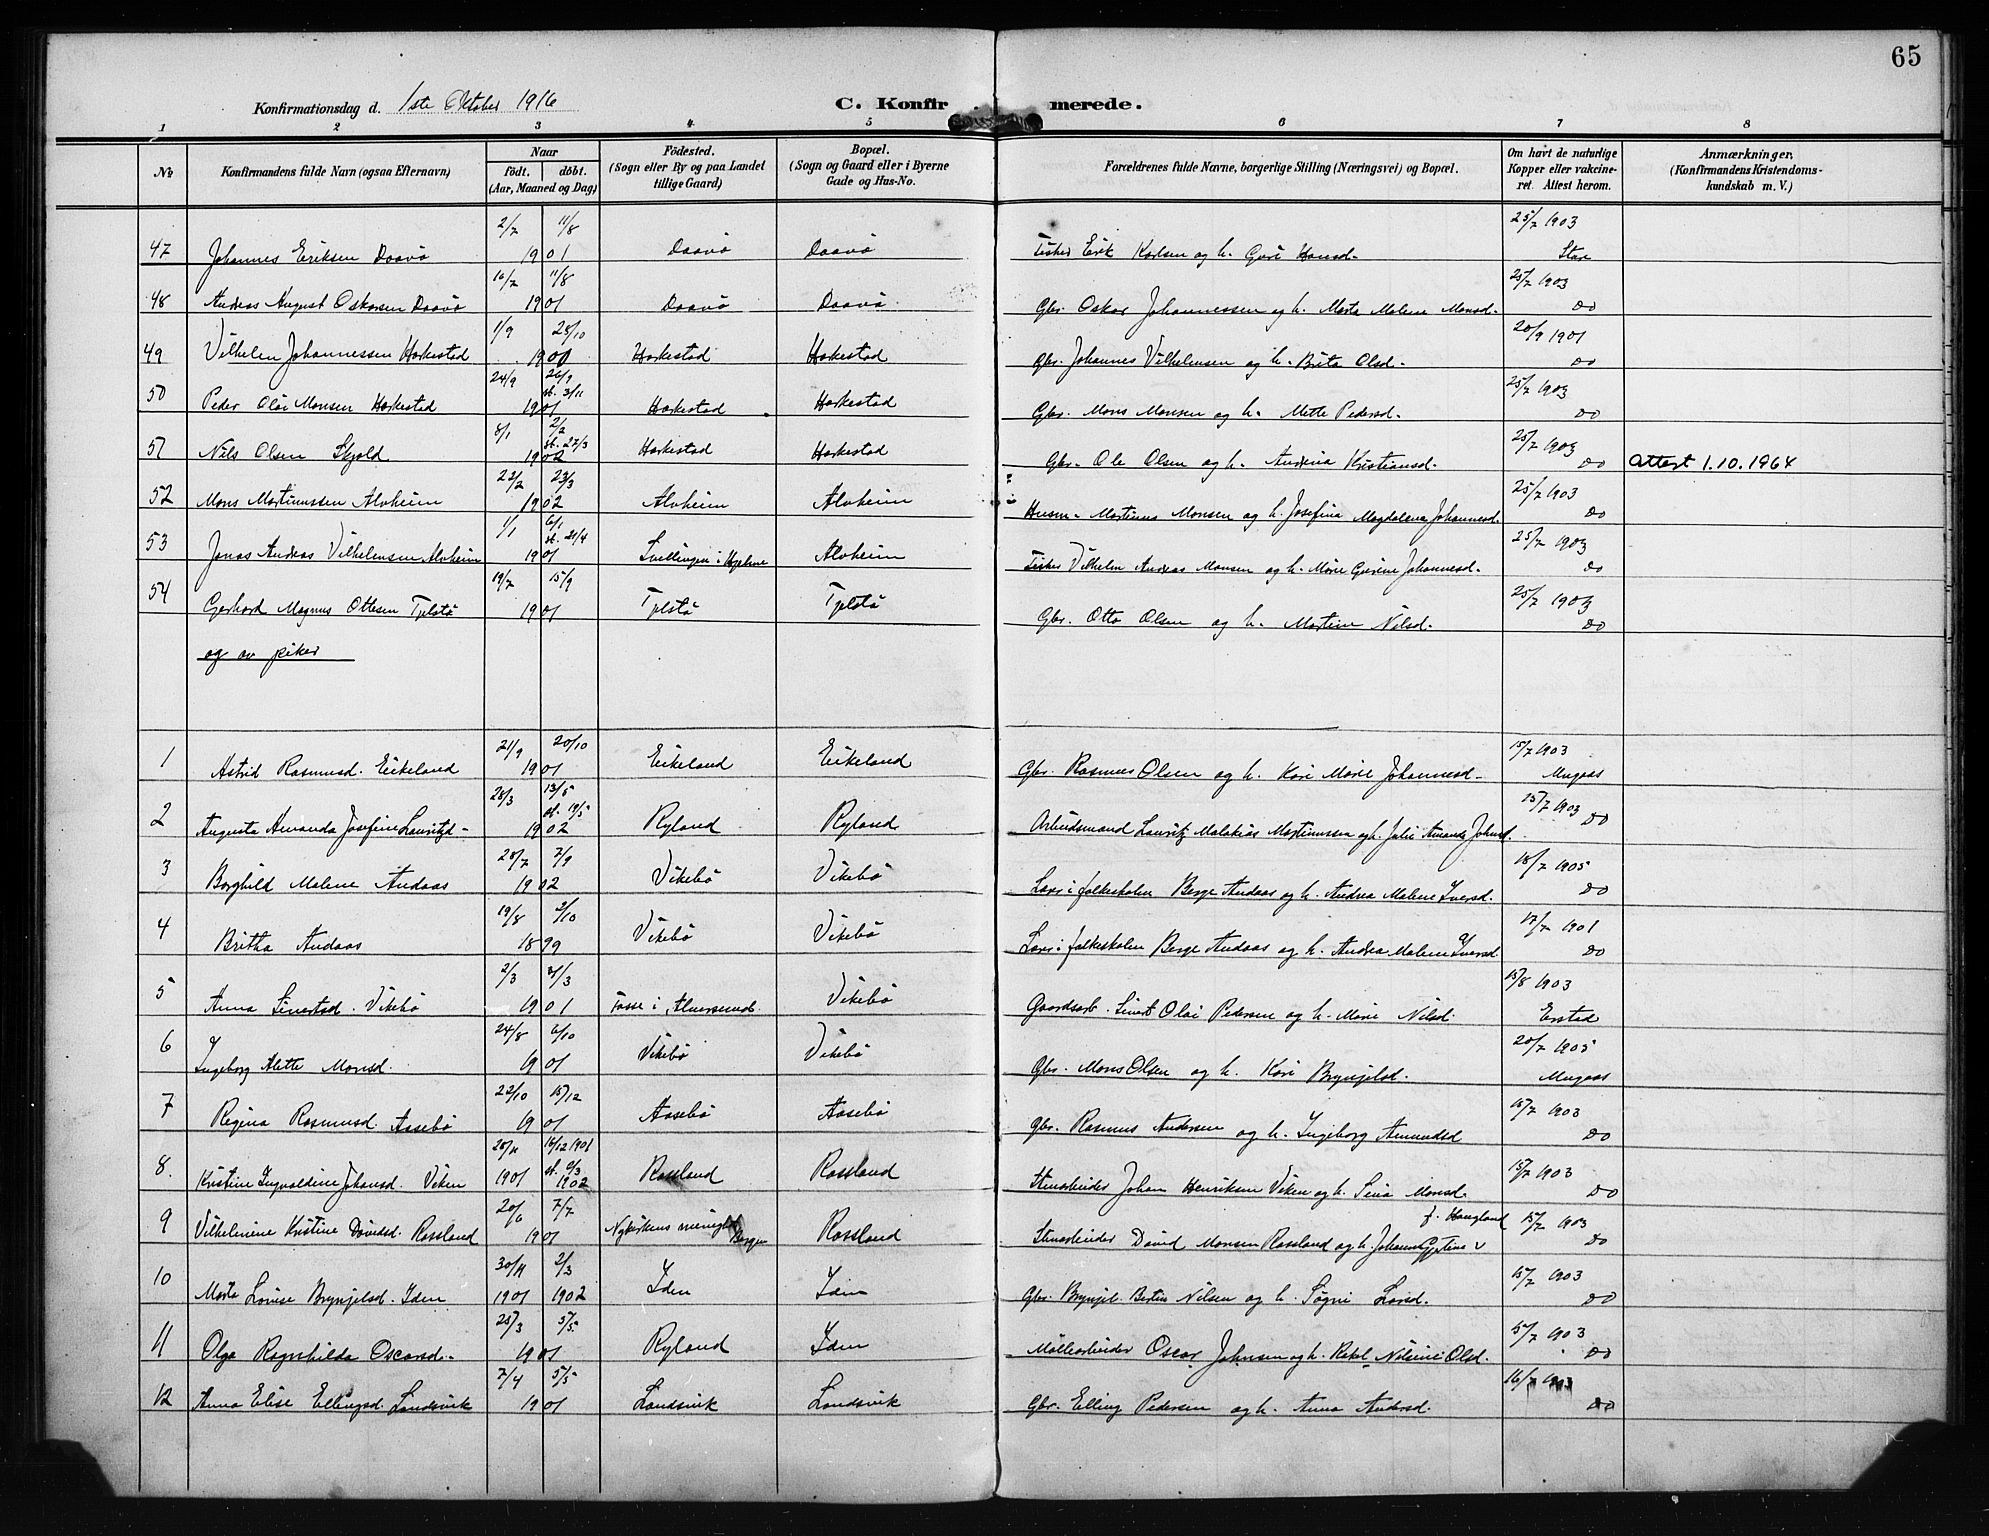 65
Konfirmationsdag d. 1ste Oktober 1916
C. Konfirmerede.
1 2 3 4 5 6 7 8
No
Konfirmandens fulde Navn (ogsaa Efternavn)
Naar födt. döbt. (Aar, Maaned og Dag)
Födested. (Sogn eller By og paa Landet tillige Gaard)
Bopæl. (Sogn og Gaard eller i Byerne Gade og Hus-No.
Forældrenes fulde Navne, borgerlige Stilling (Næringsvei) og Bopæl.
Om havt de naturlige Kopper eller vakcineret. Attest herom.
Anmærkninger. (Konfirmandens Kristendomskundskab m. V.)
47 Johannes Eriksen Daavö 2/7 11/8 1901 Daavö Daavö Fisker Erik Karlsen og h. Guri Hansd. 25/7 1903 Stare
48 Andreas August Oskarsen Daavö 16/7 11/8 1901 Daavö Daavö Gbr. Oskar Johannessen og h. Marta Malene Monsd. 25/7 1903 do
49 Vilhelm Johannessen Harkestad 1/9 28/10 1900 Harkestad Harkestad Gbr. Johannes Vilhelmsen og h. Brita Olsd. 20/9 1901 do
50 Peder Olai Monsen Harkestad 24/9 26/9 st. 3/11 1901 Harkestad Harkestad Gbr. Mons Monsen og h. Mette Pedersd. 25/7 1903 do
51 Nils Olsen Skjold 8/1 2/2 st. 27/3 1902 Harkestad Harkestad Gbr. Ole Olsen og h. Andrina Kristiansd. 25/7 1903 do Attest 1.10.1964
52 Mons Martinussen Alvheim 22/2 23/3 1902 Alvheim Alvheim Husm. Martinus Monsen og h. Josefina Magdalena Johannesd. 25/7 1903 do
53 Jonas Andreas Vilhelmsen Alvheim 1/1 6/1 st. 21/4 1901 Svellingen i Hjelme Alvheim Fisker Vilhelm Andreas Monsen og h. Marie Gurine Johannesd. 25/7 1903 do
54 Gerhard Magnus Ottesen Tjelstö 19/7 15/9 1901 Tjelstö Tjelstö Gbr. Otto Olsen og h. Martine Nilsd. 25/7 1903 do
og av piker
1 Astrid Rasmusd. Eikeland 21/9 20/10 1901 Eikeland Eikeland Gbr. Rasmus Olsen og h. Kari Marie Johannesd. 15/7 1903 Mugaas
2 Augusta Amanda Josefine Lauritzd. 28/3 13/5 st. 19/5 1902 Ryland Ryland Arbeidsmand Lauritz Malakias Martinussen og h. Julie Amanda Johnsd. 15/7 1903 do
3 Borghild Malene Andaas 28/7 7/9 1902 Vikebö Vikebö Lærer i folkeskolen Berge Andaas og h. Andrea Malene Iversd. 18/7 1905 do
4 Britha Andaas 19/8 2/10 1899 Vikebö Vikebö Lærer i folkeskolen Berge Andaas og h. Andrea Malene Iversd. 17/7 1901 do
5 Anna Sivertsd. Vikebö 2/3 31/3 1901 Fosse i Alversund. Vikebö Gaardsarb. Sivert Olai Pedersen og h. Marie Nilsd. 15/8 1903 Ersted
6 Ingeborg Alette Monsd. 24/8 6/10 1901 Vikebö Vikebö Gbr. Mons Olsen og h. Kari Brynjelsd. 20/7 1905 Mugaas
7 Regina Rasmusd. Aasebö 22/10 15/12 1901 Aasebö Aasebö Gbr. Rasmus Andersen og h. Ingeborg Amundsd 15/7 1903 do
8. Kristine Ingvaldine Johansd. Viken 28/11 1901 16/12 1901 st. 9/3 1902 Rossland Rossland Stenarbeider Johan Henriksen Viken og h. Sina Monsd. 15/7 1903 do
9 Vilhelmine Kristine Davidsd. Rossland 20/6 7/7 1901 Nykirkens menighet Bergen Rossland Stenarbeider David Monsen Rossland og h. Johanna f. Haugland 15/7 1903 do
10 Marta Lovise Brynjelsd. Iden 30/11 1901 2/3 1902 Iden Iden Gbr. Brynjel Bertin Nilsen og h. Signi Larsd. 15/7 1903 do
11 Olga Ragnhilda Oscarsd. 25/3 5/5 1901 Ryland Iden Möllearbeider Oscar Johnsen og h. Rakel Nilsine Olsd. 15/7 1903 do
12 Anna Elise Ellingsd. Landsvik 7/4 5/5 1901 Landsvik Landsvik Gbr. Elling Pedersen og h. Anna Andersd. 16/7 1903 do